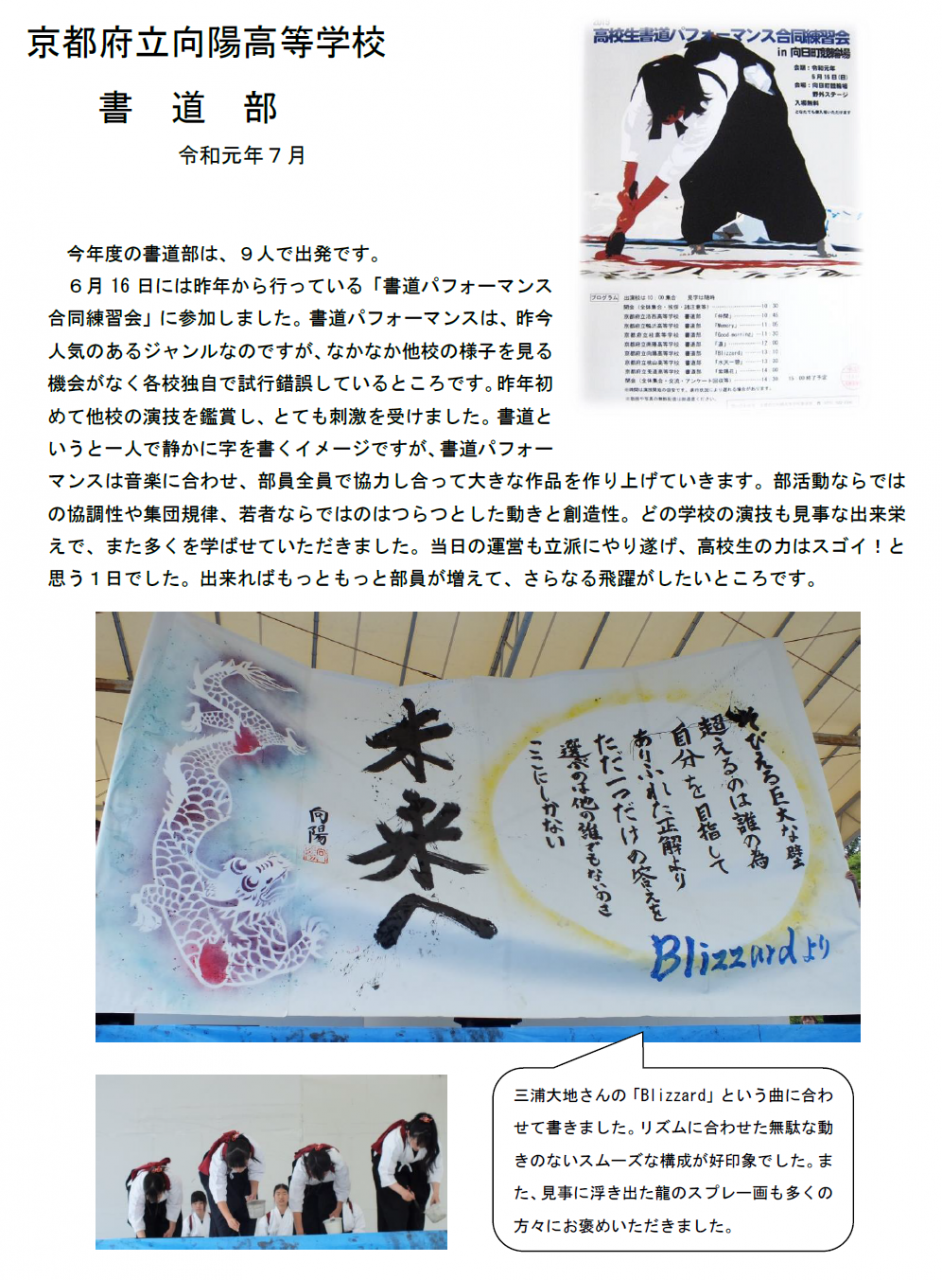 京都府立向陽高等学校
書 道 部
令和元年７月
高校生書道パフォーマンス合同練習会
in 向日町競輪場
会期：令和元年
会場：向日町競輪場
野外ステージ
入場無料
プログラム
今年度の書道部は、９人で出発です。
６月 16 日には昨年から行っている「書道パフォーマンス
合同練習会」に参加しました。書道パフォーマンスは、昨今
人気のあるジャンルなのですが、なかなか他校の様子を見る
機会がなく各校独自で試行錯誤しているところです。昨年初
めて他校の演技を鑑賞し、とても刺激を受けました。書道と
いうと一人で静かに字を書くイメージですが、書道パフォー
マンスは音楽に合わせ、部員全員で協力し合って大きな作品を作り上げていきます。部活動ならでは
の協調性や集団規律、若者ならではのはつらつとした動きと創造性。どの学校の演技も見事な出来栄
えで、また多くを学ばせていただきました。当日の運営も立派にやり遂げ、高校生の力はスゴイ！と
思う１日でした。出来ればもっともっと部員が増えて、さらなる飛躍がしたいところです。
そびえる巨大な壁
超えるのは誰の為
自分を目指して
ありふれた正解より
ただ一つだけの答えを
選ぶのは他の誰でもないのさ
ここにしかない
Blizzardより
未来へ
向陽
三浦大地さんの「Blizzard」という曲に合わ
せて書きました。リズムに合わせた無駄な動
きのないスムーズな構成が好印象でした。ま
た、見事に浮き出た龍のスプレー画も多くの
方々にお褒めいただきました。